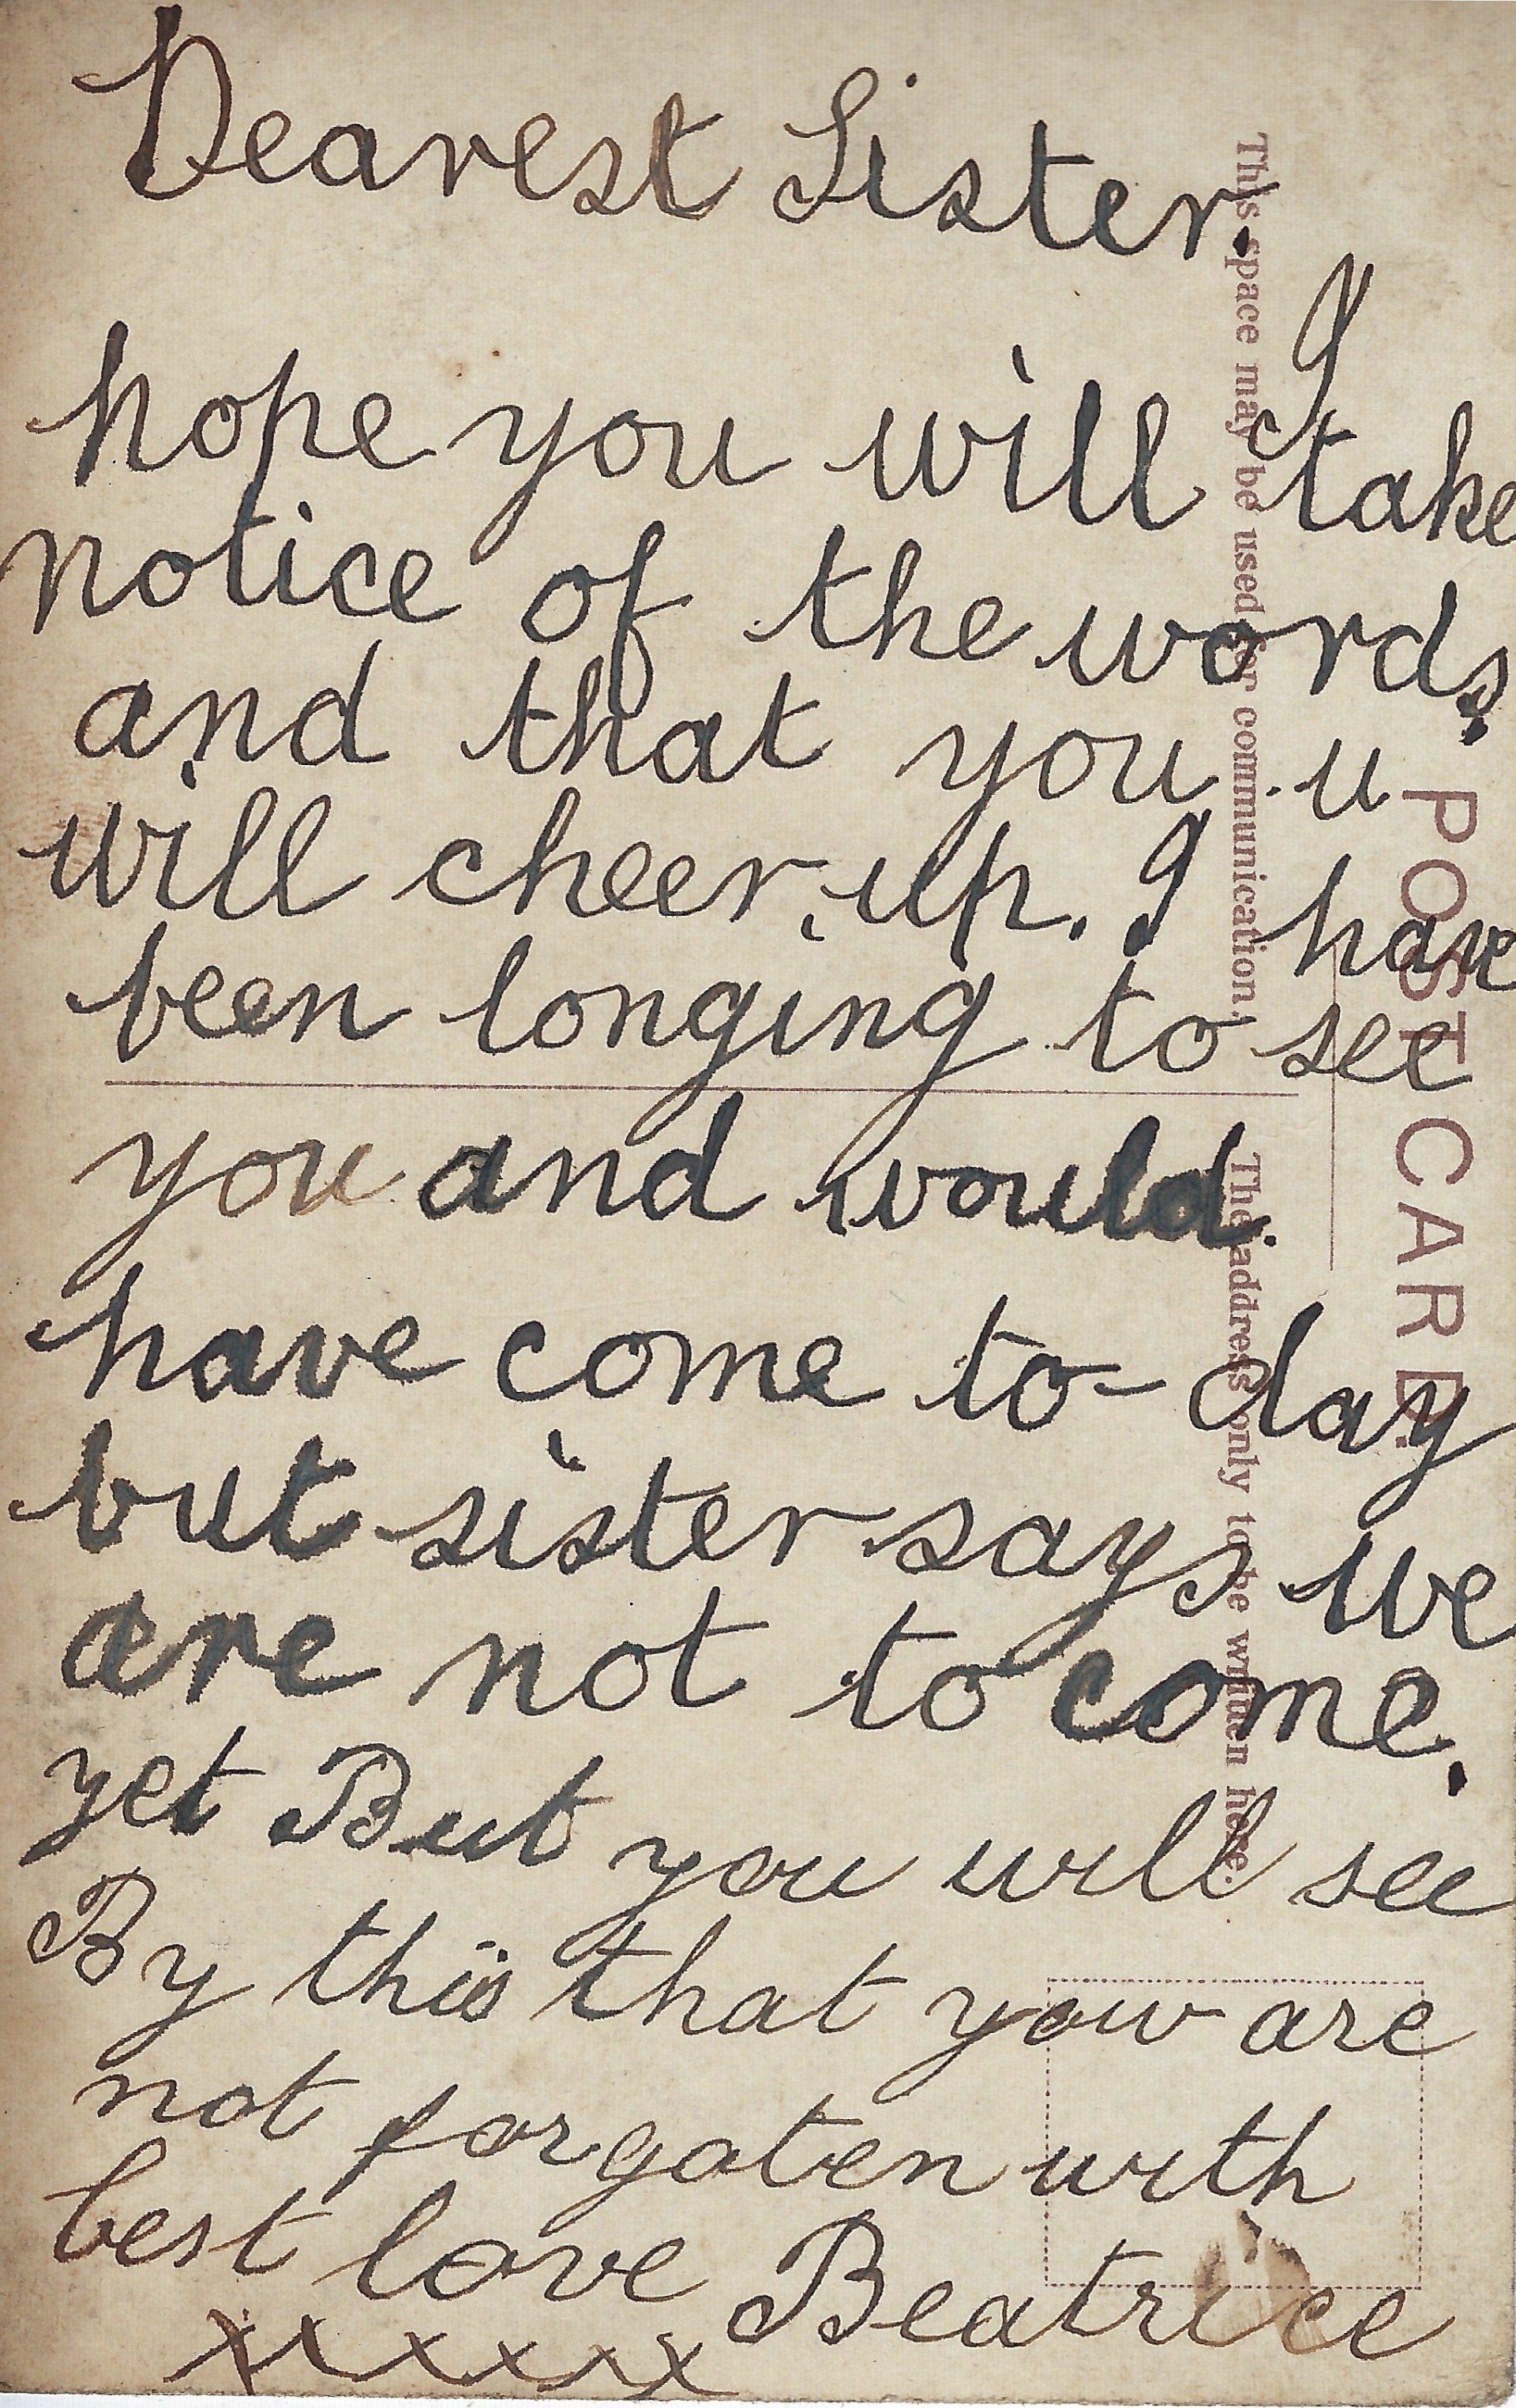 Dearest Sister.
I
hope you will take
notice of the words,
and that you u
will cheer, up. I have
been longing to see
you and would.
have come to-day
but sister says we
are not to come.
yet But you will see
By this that you are
not forgaten with
best love Beatrice
xxxxxx
POST CARD.
This space may be used for communication.
The address only to be written here.